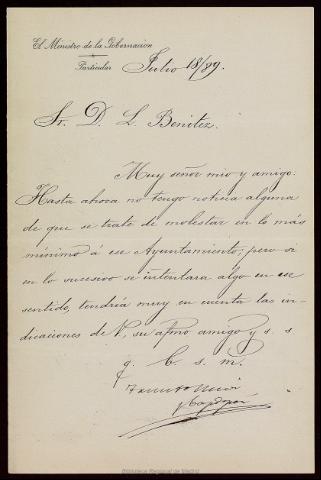 El Ministro de la Gobernación
Particular
Julio 18/89.
Sr. D. L. Benitez.
Muy señor mio y amigo:
Hasta ahora no tengo noticia alguna
de que se trate de molestar en lo más
mínimo á ese Ayuntamiento; pero si
en lo sucesivo se intentara algo en ese
sentido, tendría muy en cuenta las in-
dicaciones de V, su afmo amigo y s. s
q. b. s. m.
Biblioteca Regional de Madrid